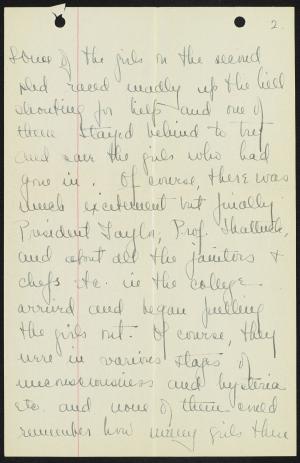 2.
Some of the girls on the second
sled raced madly up the hill
shouting for help and one of
them stayed behind to try
and save the girls who had
gone in. Of course, there was
much excitement but finally
President Taylor, Prof.
and about all the janitors +
chefs etc. in the college
arrived and began pulling
the girls out. Of course, they
were in various stages of
unconsciousness and hysteria
etc. and none of them could
remember how many girls there